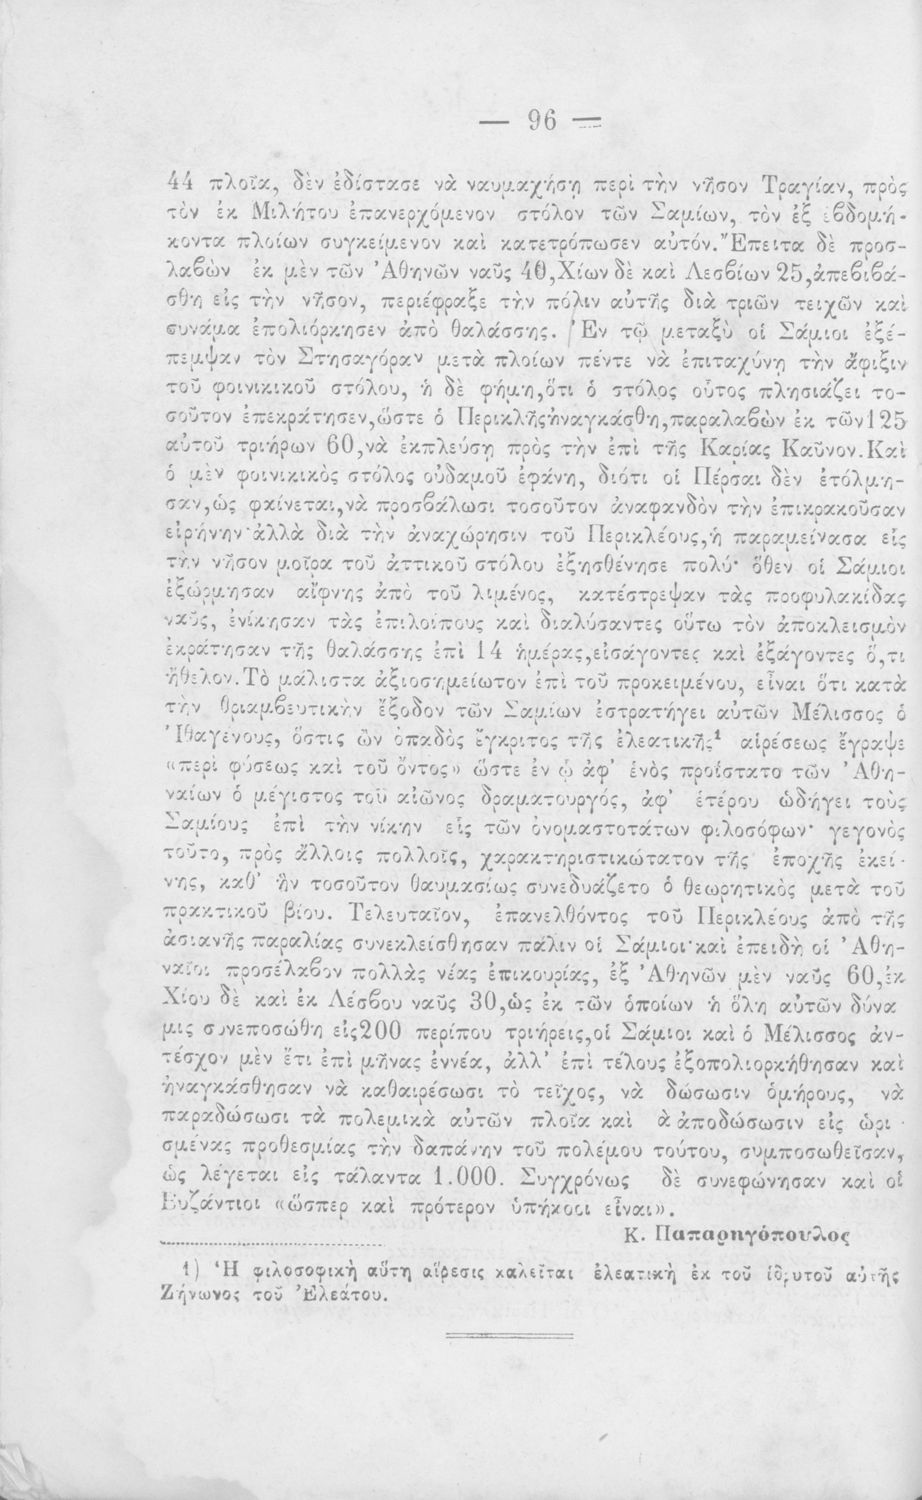 — 96 —
44 πλοῖα, δὲν ἐδίστασε νὰ ναυμαχήσῃ περὶ τὴν νῆσον Τραγίαν, πρὸς
τὸν ἐκ Μιλήτου ἐπανερχόμενον στόλον τῶν Σαμίων, τὸν ἐξ ἑβδομή-
κοντα πλοίων συγκείμενον καὶ κατετρόπωσεν αὐτόν. Ἔπειτα δὲ προσ-
λαβὼν ἐκ μὲν τῶν Ἀθηνῶν ναῦς 40, Χίων δὲ καὶ Λεσβίων 25, ἀπεβιβά-
σθη εἰς τὴν νῆσον, περιέφραξε τὴν πόλιν αὐτῆς διὰ τριῶν τειχῶν καὶ
συνάμα ἐπολιόρκησεν ἀπὸ θαλάσσης. Ἐν τῷ μεταξὺ οἱ Σάμιοι ἐξέ-
πεμψαν τὸν Στησαγόραν μετὰ πλοίων πέντε νὰ ἐπιταχύνῃ τὴν ἄφιξιν
τοῦ φοινικικοῦ στόλου, ἡ δὲ φήμη, ὅτι ὁ στόλος οὗτος πλησιάζει το-
σοῦτον ἐπεκράτησεν, ὥστε ὁ Περικλῆς ἠναγκάσθη, παραλαβὼν ἐκ τῶν 125
αὐτοῦ τριήρων 60, νὰ ἐκπλεύσῃ πρὸς τὴν ἐπὶ τῆς Καρίας Καῦνον. Καὶ
ὁ μὲν φοινικικὸς στόλος οὐδαμοῦ ἐφάνη, διότι οἱ Πέρσαι δὲν ἐτόλμη-
σαν, ὡς φαίνεται, νὰ προσβάλωσι τοσοῦτον ἀναφανδὸν τὴν ἐπικρακοῦσαν
εἰρήνην· ἀλλὰ διὰ τὴν ἀναχώρησιν τοῦ Περικλέους, ἡ παραμείνασα εἰς
τὴν νῆσον μοῖρα τοῦ ἀττικοῦ στόλου ἐξησθένησε πολύ· ὅθεν οἱ Σάμιοι
ἐξώρμησαν αἴφνης ἀπὸ τοῦ λιμένος, κατέστρεψαν τὰς προφυλακίδας
ναῦς, ἐνίκησαν τὰς ἐπιλοίπους καὶ διαλύσαντες οὕτω τὸν ἀποκλεισμὸν
ἐκράτησαν τῆς θαλάσσης ἐπὶ 14 ἡμέρας, εἰσάγοντες καὶ ἐξάγοντες ὅ,τι
ἤθελον. Τὸ μάλιστα ἀξιοσημείωτον ἐπὶ τοῦ προκειμένου, εἶναι ὅτι κατὰ
τὴν θριαμβευτικὴν ἔξοδον τῶν Σαμίων ἐστρατήγει αὐτῶν Μέλισσος ὁ
Ἰθαγένους, ὅστις ὢν ὀπαδὸς ἔγκριτος τῆς ἐλεατικῆς¹ αἱρέσεως ἔγραψε
«περὶ φύσεως καὶ τοῦ ὄντος» ὥστε ἐν ᾧ ἀφ’ ἑνὸς προΐστατο τῶν Ἀθη-
ναίων ὁ μέγιστος τοῦ αἰῶνος δραματουργός, ἀφ’ ἑτέρου ὡδήγει τοὺς
Σαμίους ἐπὶ τὴν νίκην εἷς τῶν ὀνομαστοτάτων φιλοσόφων· γεγονὸς
τοῦτο, πρὸς ἄλλοις πολλοῖς, χαρακτηριστικώτατον τῆς ἐποχῆς ἐκεί-
νης, καθ’ ἣν τοσοῦτον θαυμασίως συνεδυάζετο ὁ θεωρητικὸς μετὰ τοῦ
πρακτικοῦ βίου. Τελευταῖον, ἐπανελθόντος τοῦ Περικλέους ἀπὸ τῆς
ἀσιανῆς παραλίας συνεκλείσθησαν πάλιν οἱ Σάμιοι· καὶ ἐπειδὴ οἱ Ἀθη-
ναῖοι προσέλαβον πολλὰς νέας ἐπικουρίας, ἐξ Ἀθηνῶν μὲν ναῦς 60, ἐκ
Χίου δὲ καὶ ἐκ Λέσβου ναῦς 30, ὡς ἐκ τῶν ὁποίων ἡ ὅλη αὐτῶν δύνα
μις συνεποσώθη εἰς 200 περίπου τριήρεις, οἱ Σάμιοι καὶ ὁ Μέλισσος ἀν-
τέσχον μὲν ἔτι ἐπὶ μῆνας ἐννέα, ἀλλ’ ἐπὶ τέλους ἐξοπολιορκήθησαν καὶ
ἠναγκάσθησαν νὰ καθαιρέσωσι τὸ τεῖχος, νὰ δώσωσιν ὁμήρους, νὰ
παραδώσωσι τὰ πολεμικὰ αὐτῶν πλοῖα καὶ ἀ ἀποδώσωσιν εἰς ὡρι-
σμένας προθεσμίας τὴν δαπάνην τοῦ πολέμου τούτου, συμποσωθεῖσαν,
ὡς λέγεται εἰς τάλαντα 1.000. Συγχρόνως δὲ συνεφώνησαν καὶ οἱ
Βυζάντιοι «ὥσπερ καὶ πρότερον ὑπήκοοι εἶναι».
Κ. Παπαρηγόπουλος
1) Ἡ φιλοσοφικὴ αὕτη αἵρεσις καλεῖται ἐλεατικὴ ἐκ τοῦ ἱδρυτοῦ αὐτῆς
Ζήνωνος τοῦ Ἐλεάτου.